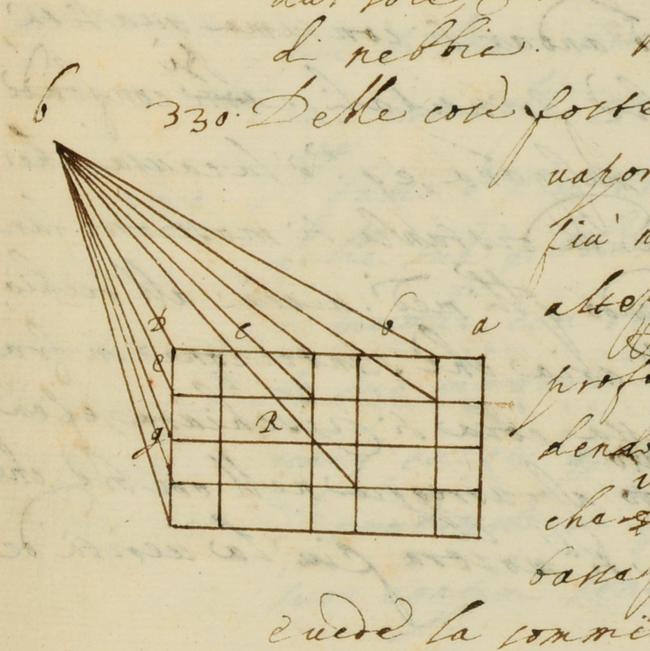 di nebbia.
b
330. Delle cose poste
vapor
più
alte
D c b a
e
prof
R
g
che
bassa
e vede la sommi